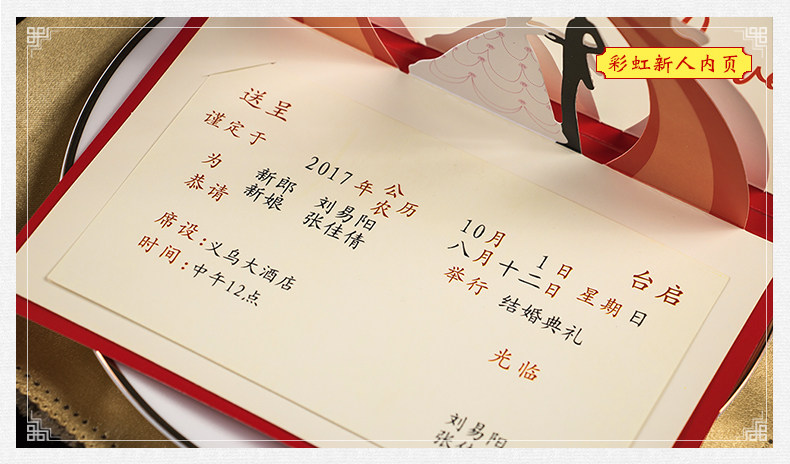 彩虹新人内页
送呈 台启
谨定于 2017年 公历 10月 1日
农历 八月十二日 星期日
为 新郎 刘易阳
新娘 张佳倩 举行 结婚典礼
恭请 光临
席设:义乌大酒店
时间:中午12点
刘易阳
张佳倩